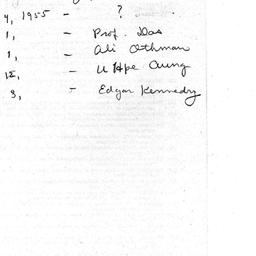 4, 1955 - ?
1, - Prof. Das
1, - Ali Othman
12, - U Hpe Aung
3, - Edgar Kennedy